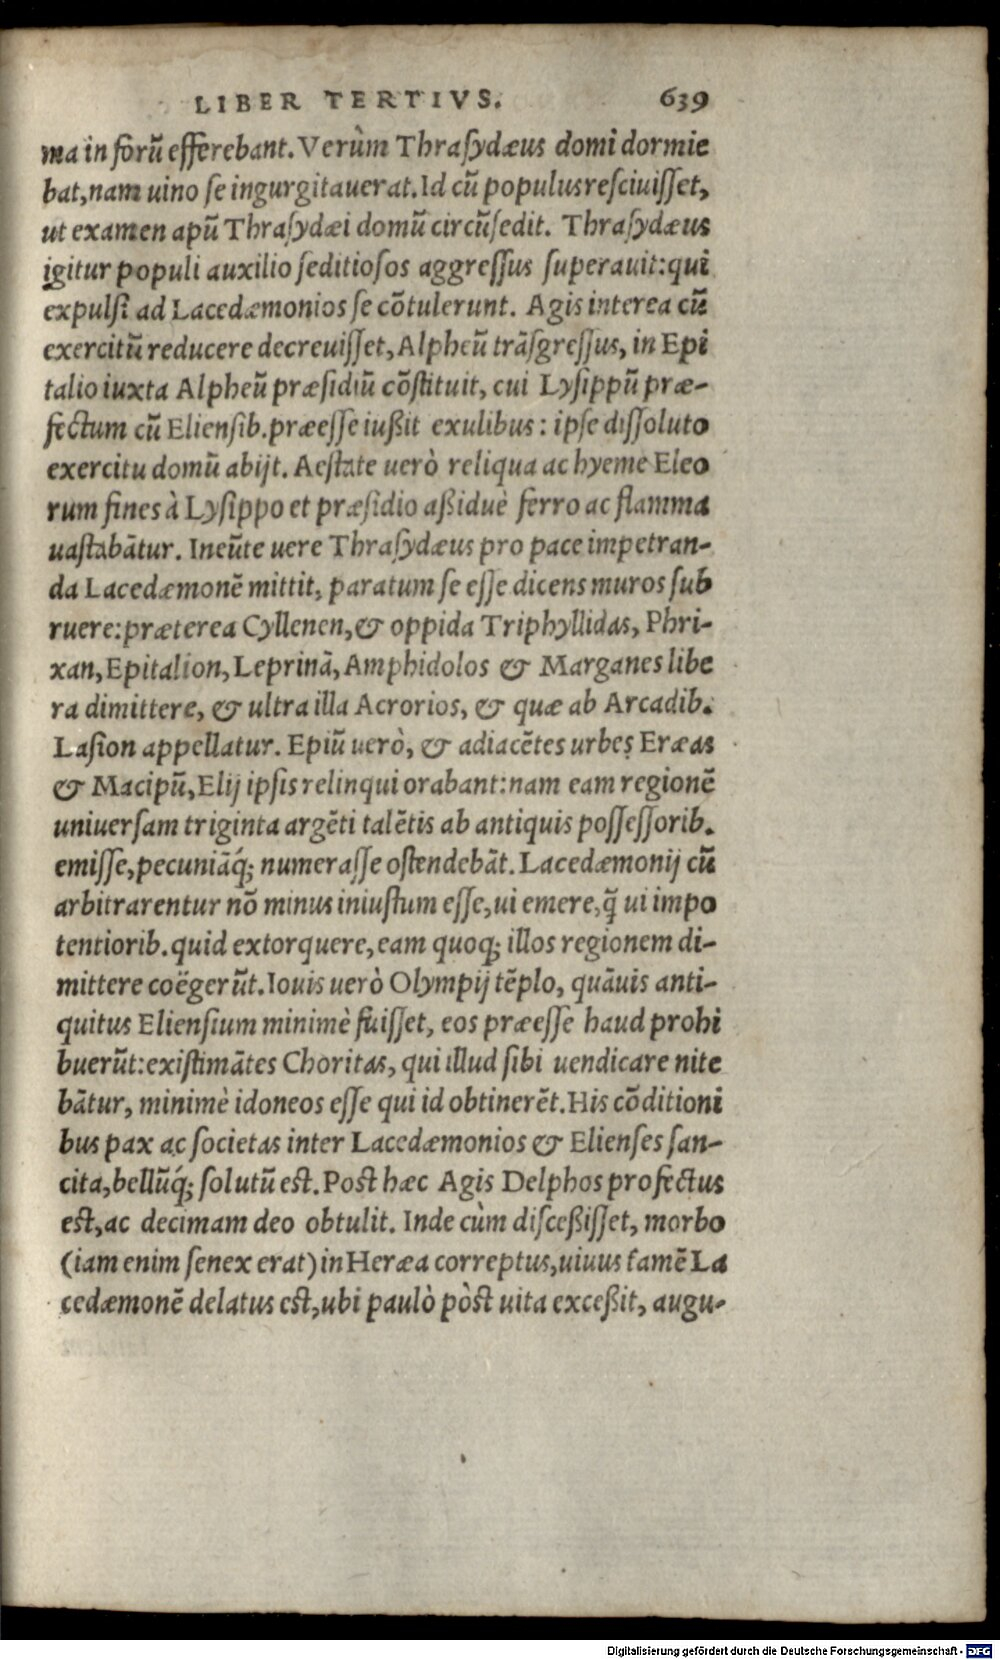 LIBER TERTIVS. 639
ma in forũ efferebant. Verùm Thraſydæus domi dormie
bat, nam uino ſe ingurgitauerat. Id cũ populus reſciuiſſet,
ut examen apũ Thraſydæi domũ circũſedit. Thraſydæus
igitur populi auxilio ſeditioſos aggreſſus ſuperauit: qui
expulſi ad Lacedæmonios ſe cõtulerunt. Agis interea cũ
exercitũ reducere decreuiſſet, Alpheũ trãſgreſſus, in Epi
talio iuxta Alpheũ præſidiũ cõſtituit, cui Lyſippũ præ-
fectum cũ Elienſib. præeſſe iußit exulibus: ipſe diſſoluto
exercitu domũ abijt. Aeſtate uerò reliqua ac hyeme Eleo
rum fines à Lyſippo et præſidio aßiduè ferro ac flamma
uaſtabãtur. Ineũte uere Thraſydæus pro pace impetran-
da Lacedæmonẽ mittit, paratum ſe eſſe dicens muros ſub
ruere: præterea Cyllenen, & oppida Triphyllidas, Phri-
xan, Epitalion, Leprinã, Amphidolos & Marganes libe
ra dimittere, & ultra illa Acrorios, & quæ ab Arcadib.
Laſion appellatur. Epiũ uerò, & adiacẽtes urbes Eræas
& Macipũ, Elij ipſis relinqui orabant: nam eam regionẽ
uniuerſam triginta argẽti talẽtis ab antiquis poſſeſſorib.
emiſſe, pecuniãq́; numeraſſe oſtendebãt. Lacedæmonij cũ
arbitrarentur nõ minus iniuſtum eſſe, ui emere, q̃ ui impo
tentiorib. quid extorquere, eam quoq; illos regionem di-
mittere coëgerũt. Iouis uerò Olympij tẽplo, quãuis anti-
quitus Elienſium minimè fuiſſet, eos præeſſe haud prohi
buerũt: exiſtimãtes Choritas, qui illud ſibi uendicare nite
bãtur, minimè idoneos eſſe qui id obtinerẽt. His cõditioni
bus pax ac ſocietas inter Lacedæmonios & Elienſes ſan-
cita, bellũq́; ſolutũ eſt. Poſt hæc Agis Delphos profectus
eſt, ac decimam deo obtulit. Inde cùm diſceßiſſet, morbo
(iam enim ſenex erat) in Heræa correptus, uiuus tamẽ La
cedæmonẽ delatus eſt, ubi paulò pòſt uita exceßit, augu-
Digitalisierung gefördert durch die Deutsche Forschungsgemeinschaft - DFG